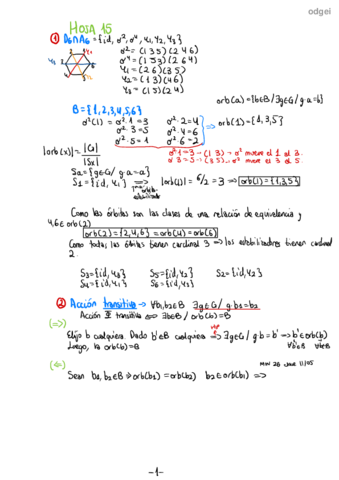 odgei
HOJA 15
① D6∩A6 = {id, σ², σ⁴, Ψ1, Ψ2, Ψ3}
σ² = (1 3 5)(2 4 6)
σ⁴ = (1 5 3)(2 6 4)
Ψ1 = (2 6)(3 5)
Ψ2 = (1 3)(4 6)
Ψ3 = (1 5)(2 4)
orb(a) = {b∈B / ∃g∈G / g·a = b}
B = {1,2,3,4,5,6}
σ²(1) = σ²·1 = 3 σ²·2 = 4
σ²·3 = 5 σ²·4 = 6
σ²·5 = 1 σ²·6 = 2
⟹ orb(1) = {1,3,5}
|orb(x)| = |G| / |Sx|
σ²·1 = 3 → (1 3) → σ² mueve el 1 al 3
σ²·3 = 5 → (3 5) → σ² mueve el 3 al 5
Sa = {g∈G / g·a = a}
S1 = {id, Ψ1} ⟹ |orb(1)| = 6/2 = 3 ⟹ orb(1) = {1,3,5}
Como las órbitas son las clases de una relación de equivalencia y
4,6 ∈ orb(2)
orb(2) = {2,4,6} = orb(4) = orb(6)
Como todas las órbitas tienen cardinal 3 ⟹ los estabilizadores tienen cardinal
2.
S3 = {id, Ψ3} S5 = {id, Ψ2} S2 = {id, Ψ3}
S4 = {id, Ψ1} S6 = {id, Ψ3}
② Acción transitiva → ∀b1,b2∈B ∃g∈G / g·b1 = b2
Acción transitiva ⟺ ∃b∈B / orb(b) = B
(⟹)
Elijo b cualquiera. Dado b'∈B cualquiera ⟹ ∃g∈G / g·b = b' → b'∈orb(b)
∀b'∈B
Luego, la orb(b) = B
(⟸)
Sean b1, b2∈B ⟹ orb(b1) = orb(b2) b2∈orb(b1) ⟹
-1-